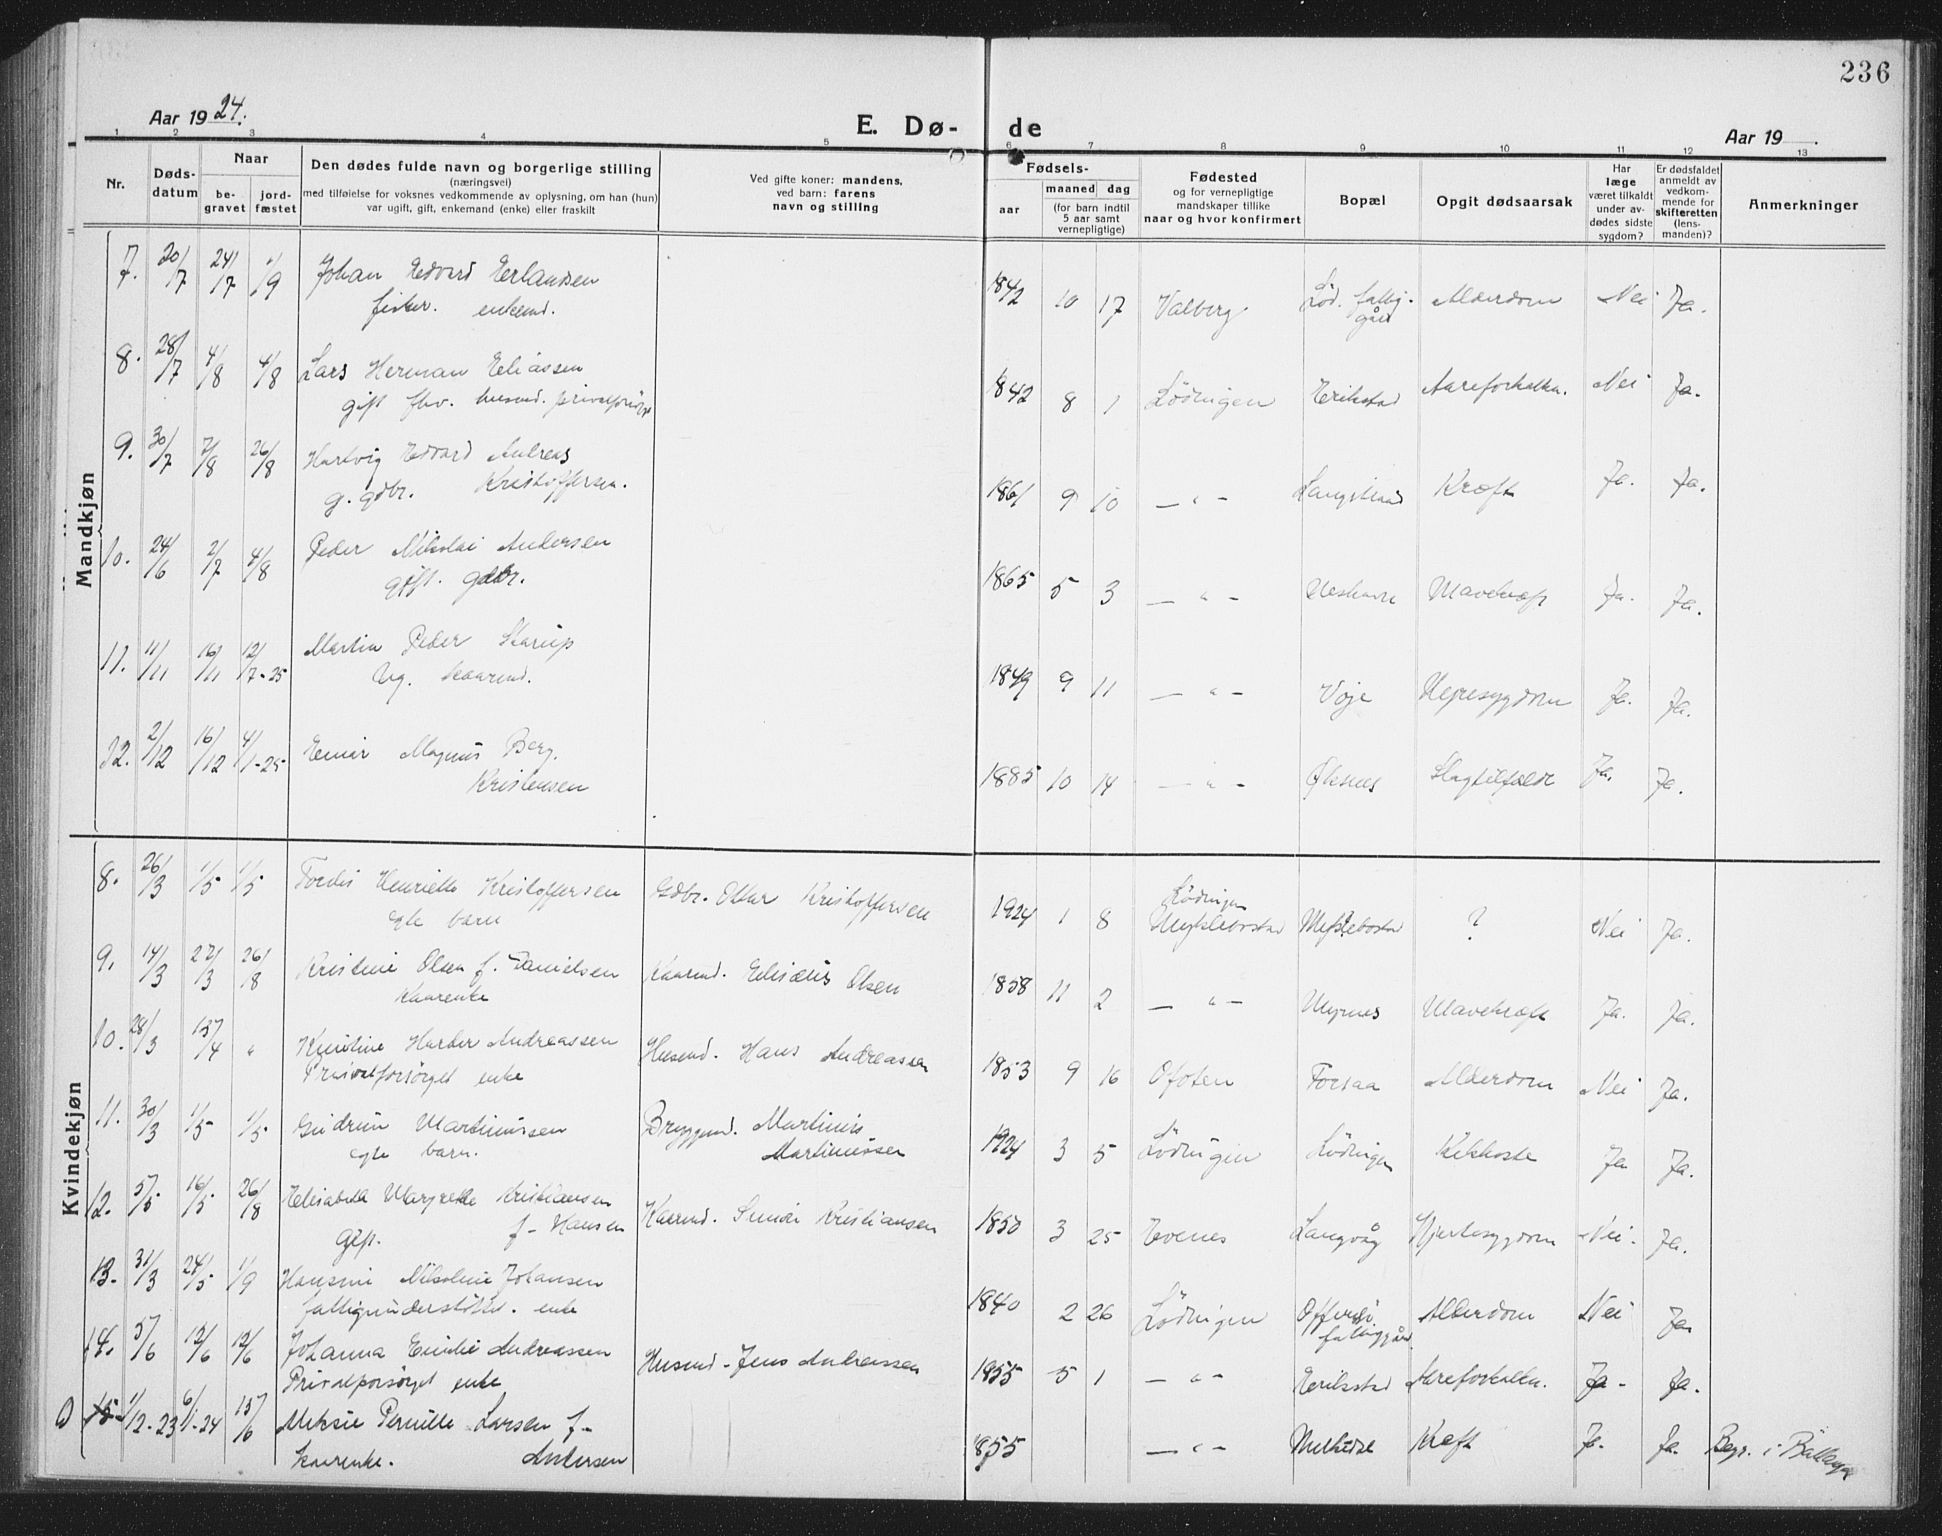 236
Aar 1924.
E. Dø-de
Aar 19 .
1 2 3 4 5 6 7 8 9 10 11 12 13
Nr.
Døds-
datum
Naar
be-
gravet
jord-
fæstet
Den dødes fulde navn og borgerlige stilling
(næringsvei)
med tilføielse for voksnes vedkommende av oplysning, om han (hun)
var ugift, gift, enkemand (enke) eller fraskilt
Ved gifte koner: mandens,
ved barn: farens
navn og stilling
Fødsels-
aar
maaned dag
(for barn indtil
5 aar samt
vernepligtige)
Fødested
og for vernepligtige
mandskaper tillike
naar og hvor konfirmert
Bopæl
Opgit dødsaarsak
Har
læge
været tilkaldt
under av-
dødes sidste
sygdom?
Er dødsfaldet
anmeldt av
vedkom-
mende for
skifteretten
(lens-
manden)?
Anmerkninger
Mandkjøn
7. 20/7 24/7 1/9 Johan Edvard Erlandsen 1842 10 17 Valberg Lød. fattig- Alderdom Nei Ja.
fisker. enkemd. gård
8. 28/7 4/8 4/8 Lars Herman Eliassen 1842 8 1 Lödingen Erikstad Aareforkalkn. Nei Ja.
gift fhv. husmd. privatforsörg
9. 30/7 7/8 26/8 Hartvig Edvard Andreas 1861 9 10 — " — Langstrand Kræft Ja. Ja.
g. gdbr. Kristoffersen.
10. 24/6 2/7 4/8 Peder Nikolai Andersen 1865 5 3 — " — Neshavn Mavekræft Ja. Ja.
gift. gdbr.
11. 11/11 16/11 12/7-25 Martin Peder Starup 1849 9 11 — " — Voje Nyresygdom Ja. Ja.
Ug. kaarmd.
12. 2/12 16/12 4/1-25 Einar Magnus Berg. 1885 10 14 — " — Øksnes Slagtilfælde Ja. Ja.
Kristensen
Kvindekjøn
8. 26/3 1/5 1/5 Tordis Henriette Kristoffersen Gdbr. Ottar Kristoffersen 1924 1 8 Lödingen Myklebostad Myklebostad ? Nei Ja.
egte barn
9. 14/3 22/3 26/8 Kristine Olsen f. Danielsen Kaarmd. Elisæus Olsen 1858 11 2 — " — Myrnes Mavekræft Ja. Ja.
Kaarenke
10. 28/3 15/4 " Kristine Harber Andreassen Husmd. Hans Andreassen 1853 9 16 Ofoten Forsaa Alderdom Nei Ja.
Privatforsörget enke
11. 30/3 1/5 1/5 Gudrun Martinussen Bryggmd. Martinus 1924 3 5 Lödingen Lödingen Kikhoste Ja Ja.
egte barn. Martinussen
12. 5/5 16/5 26/8 Elisabeth Margrethe Kristiansen Kaarmd. Simon Kristiansen 1850 3 25 Evenes Langvåg Hjertesygdom Nei. Ja.
Gift. f- Hansen
13. 31/3 24/5 1/9 Hansine Nikoline Johansen 1840 2 26 Lödingen Offersö Alderdom Nei Ja
fattigunderstöttet. enke fattiggård
14. 5/6 12/6 12/6 Johanna Emilie Andreassen Husmd. Jens Andreassen 1855 5 1 — " — Erikstad Aareforkalkn. Ja. Ja.
Privatforsörget enke
15 1/12-23 6/1-24 15/6 Pernille Larsen f- 1855 — " — Kræft Ja. Ja. Begr. i Ballangen
kaarenke. Andersen